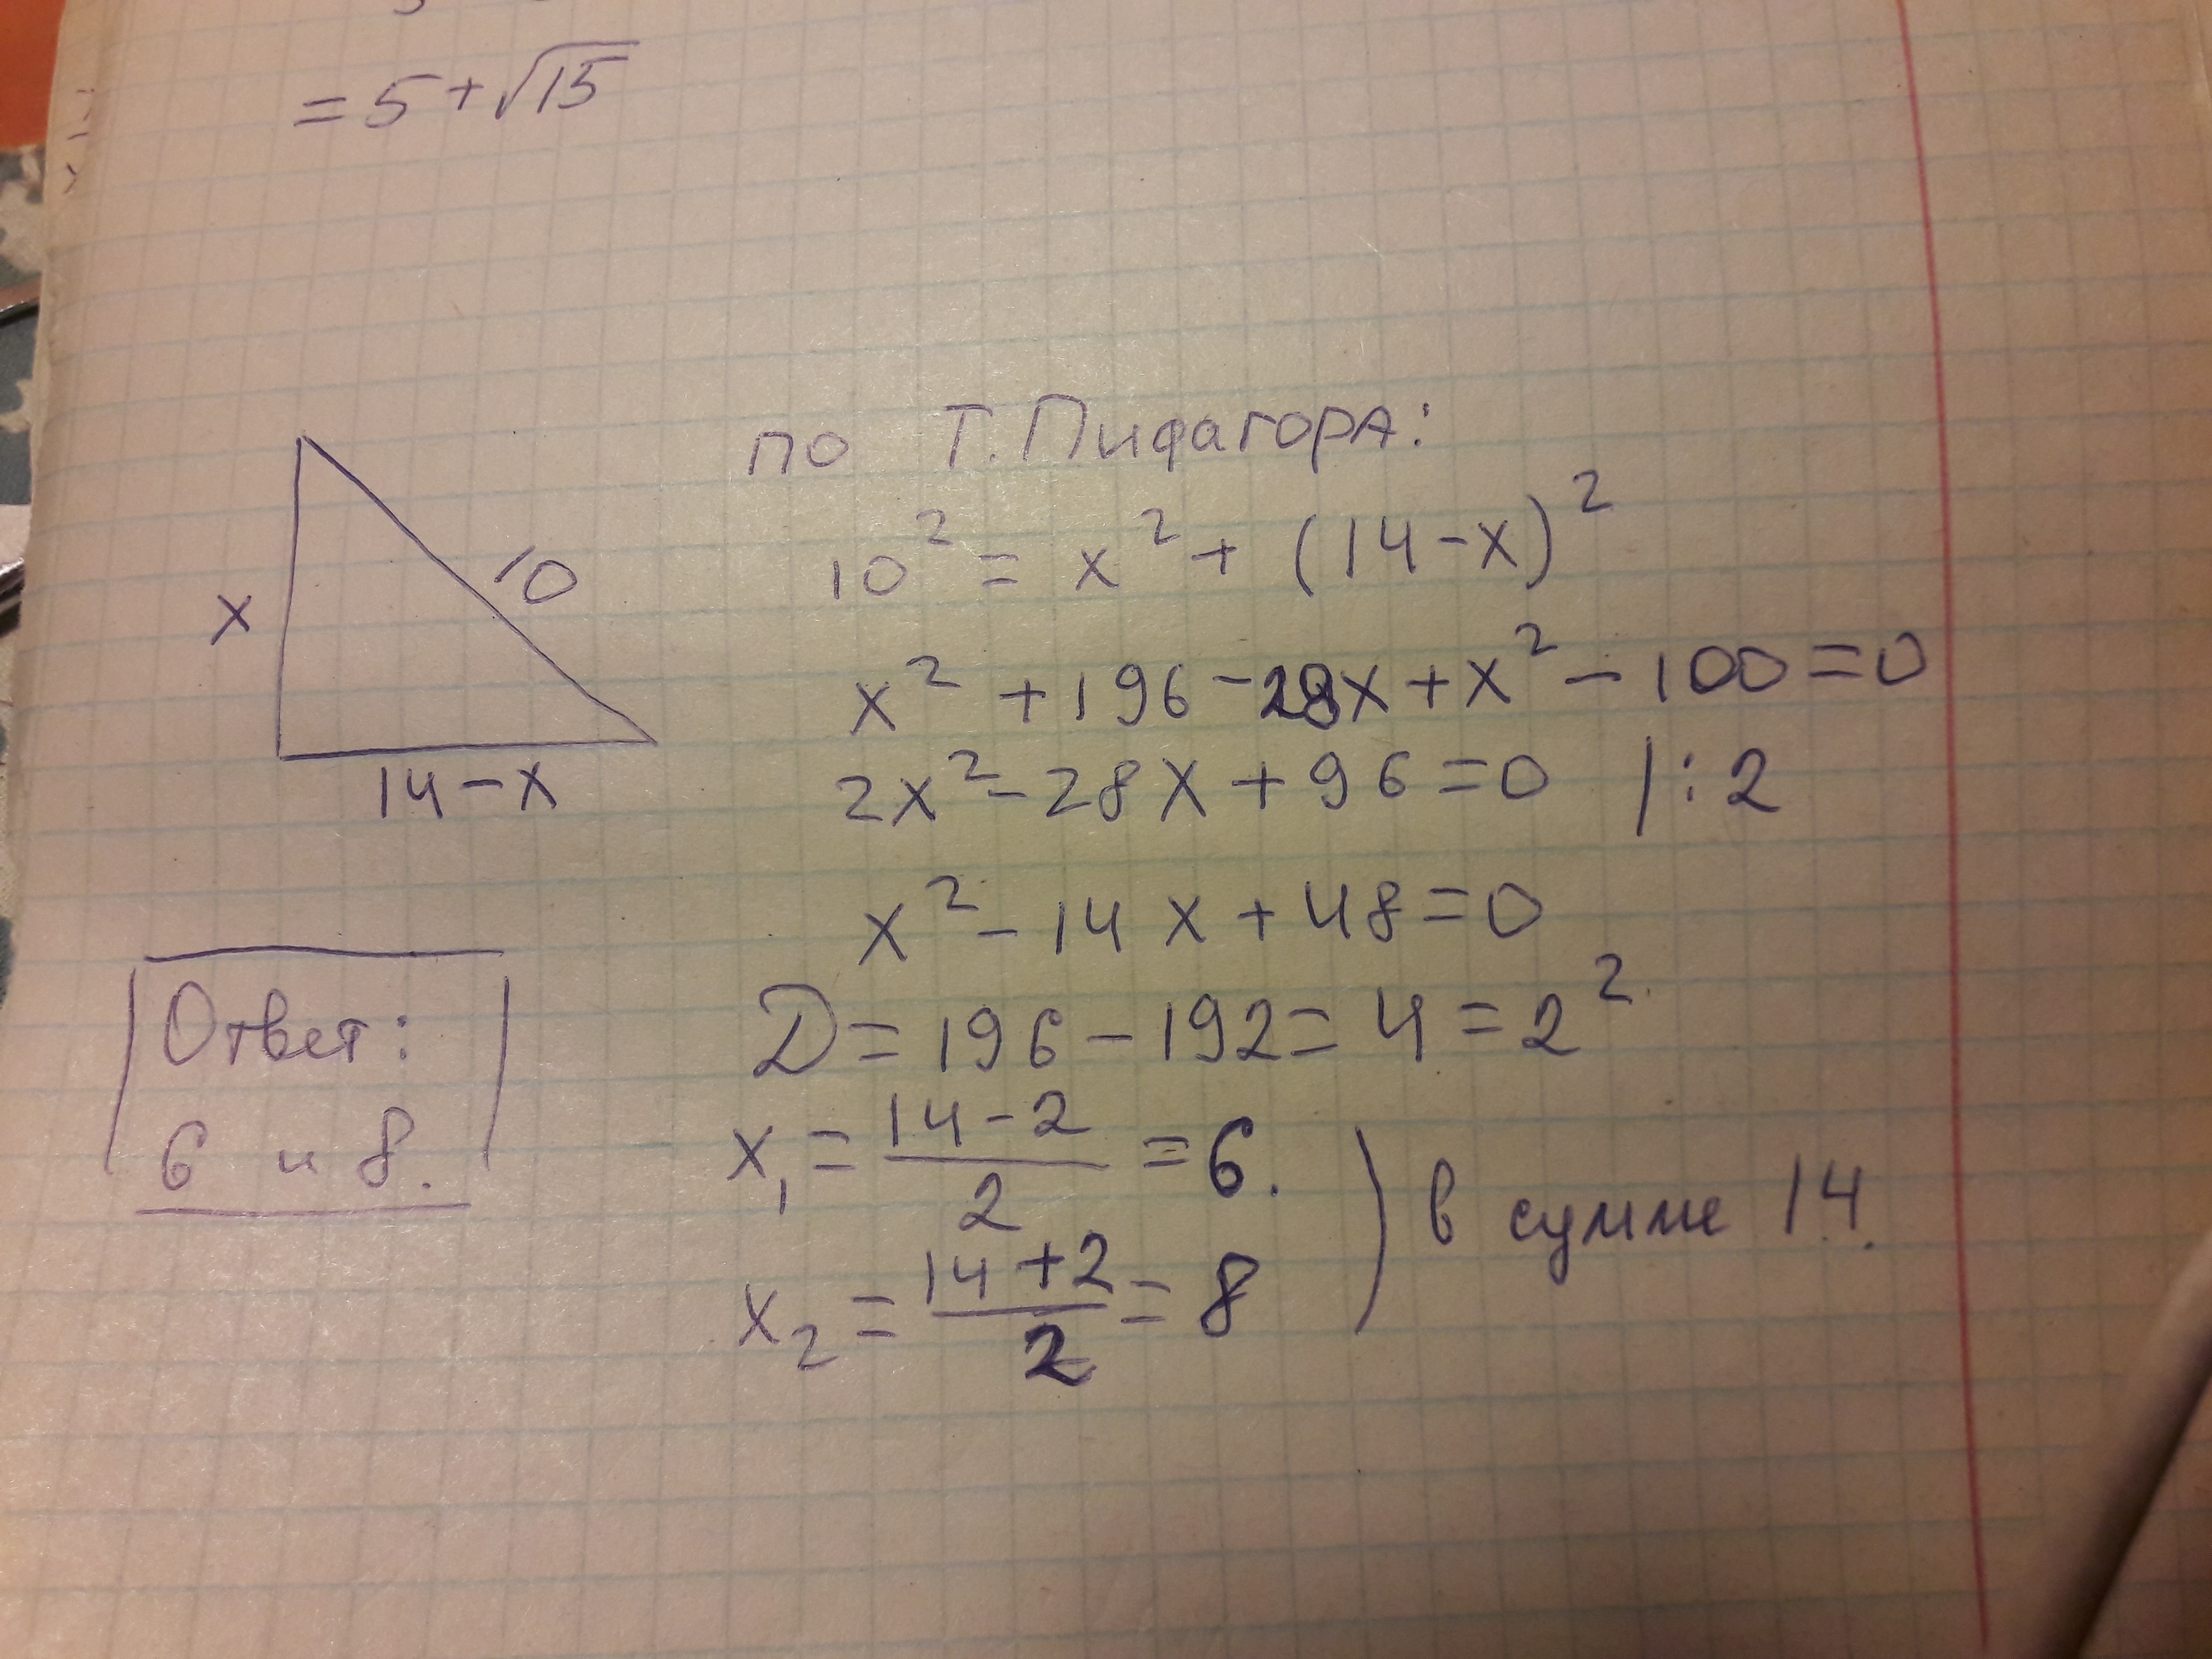 = 5 + √15
по Т. Пифагора:
10² = x² + (14 - x)²
x
10
14 - x
x² + 196 - 28x + x² - 100 = 0
2x² - 28x + 96 = 0 | : 2
x² - 14x + 48 = 0
D = 196 - 192 = 4 = 2²
x₁ = (14 - 2)/2 = 6.
x₂ = (14 + 2)/2 = 8
) в сумме 14.
Ответ:
6 и 8.